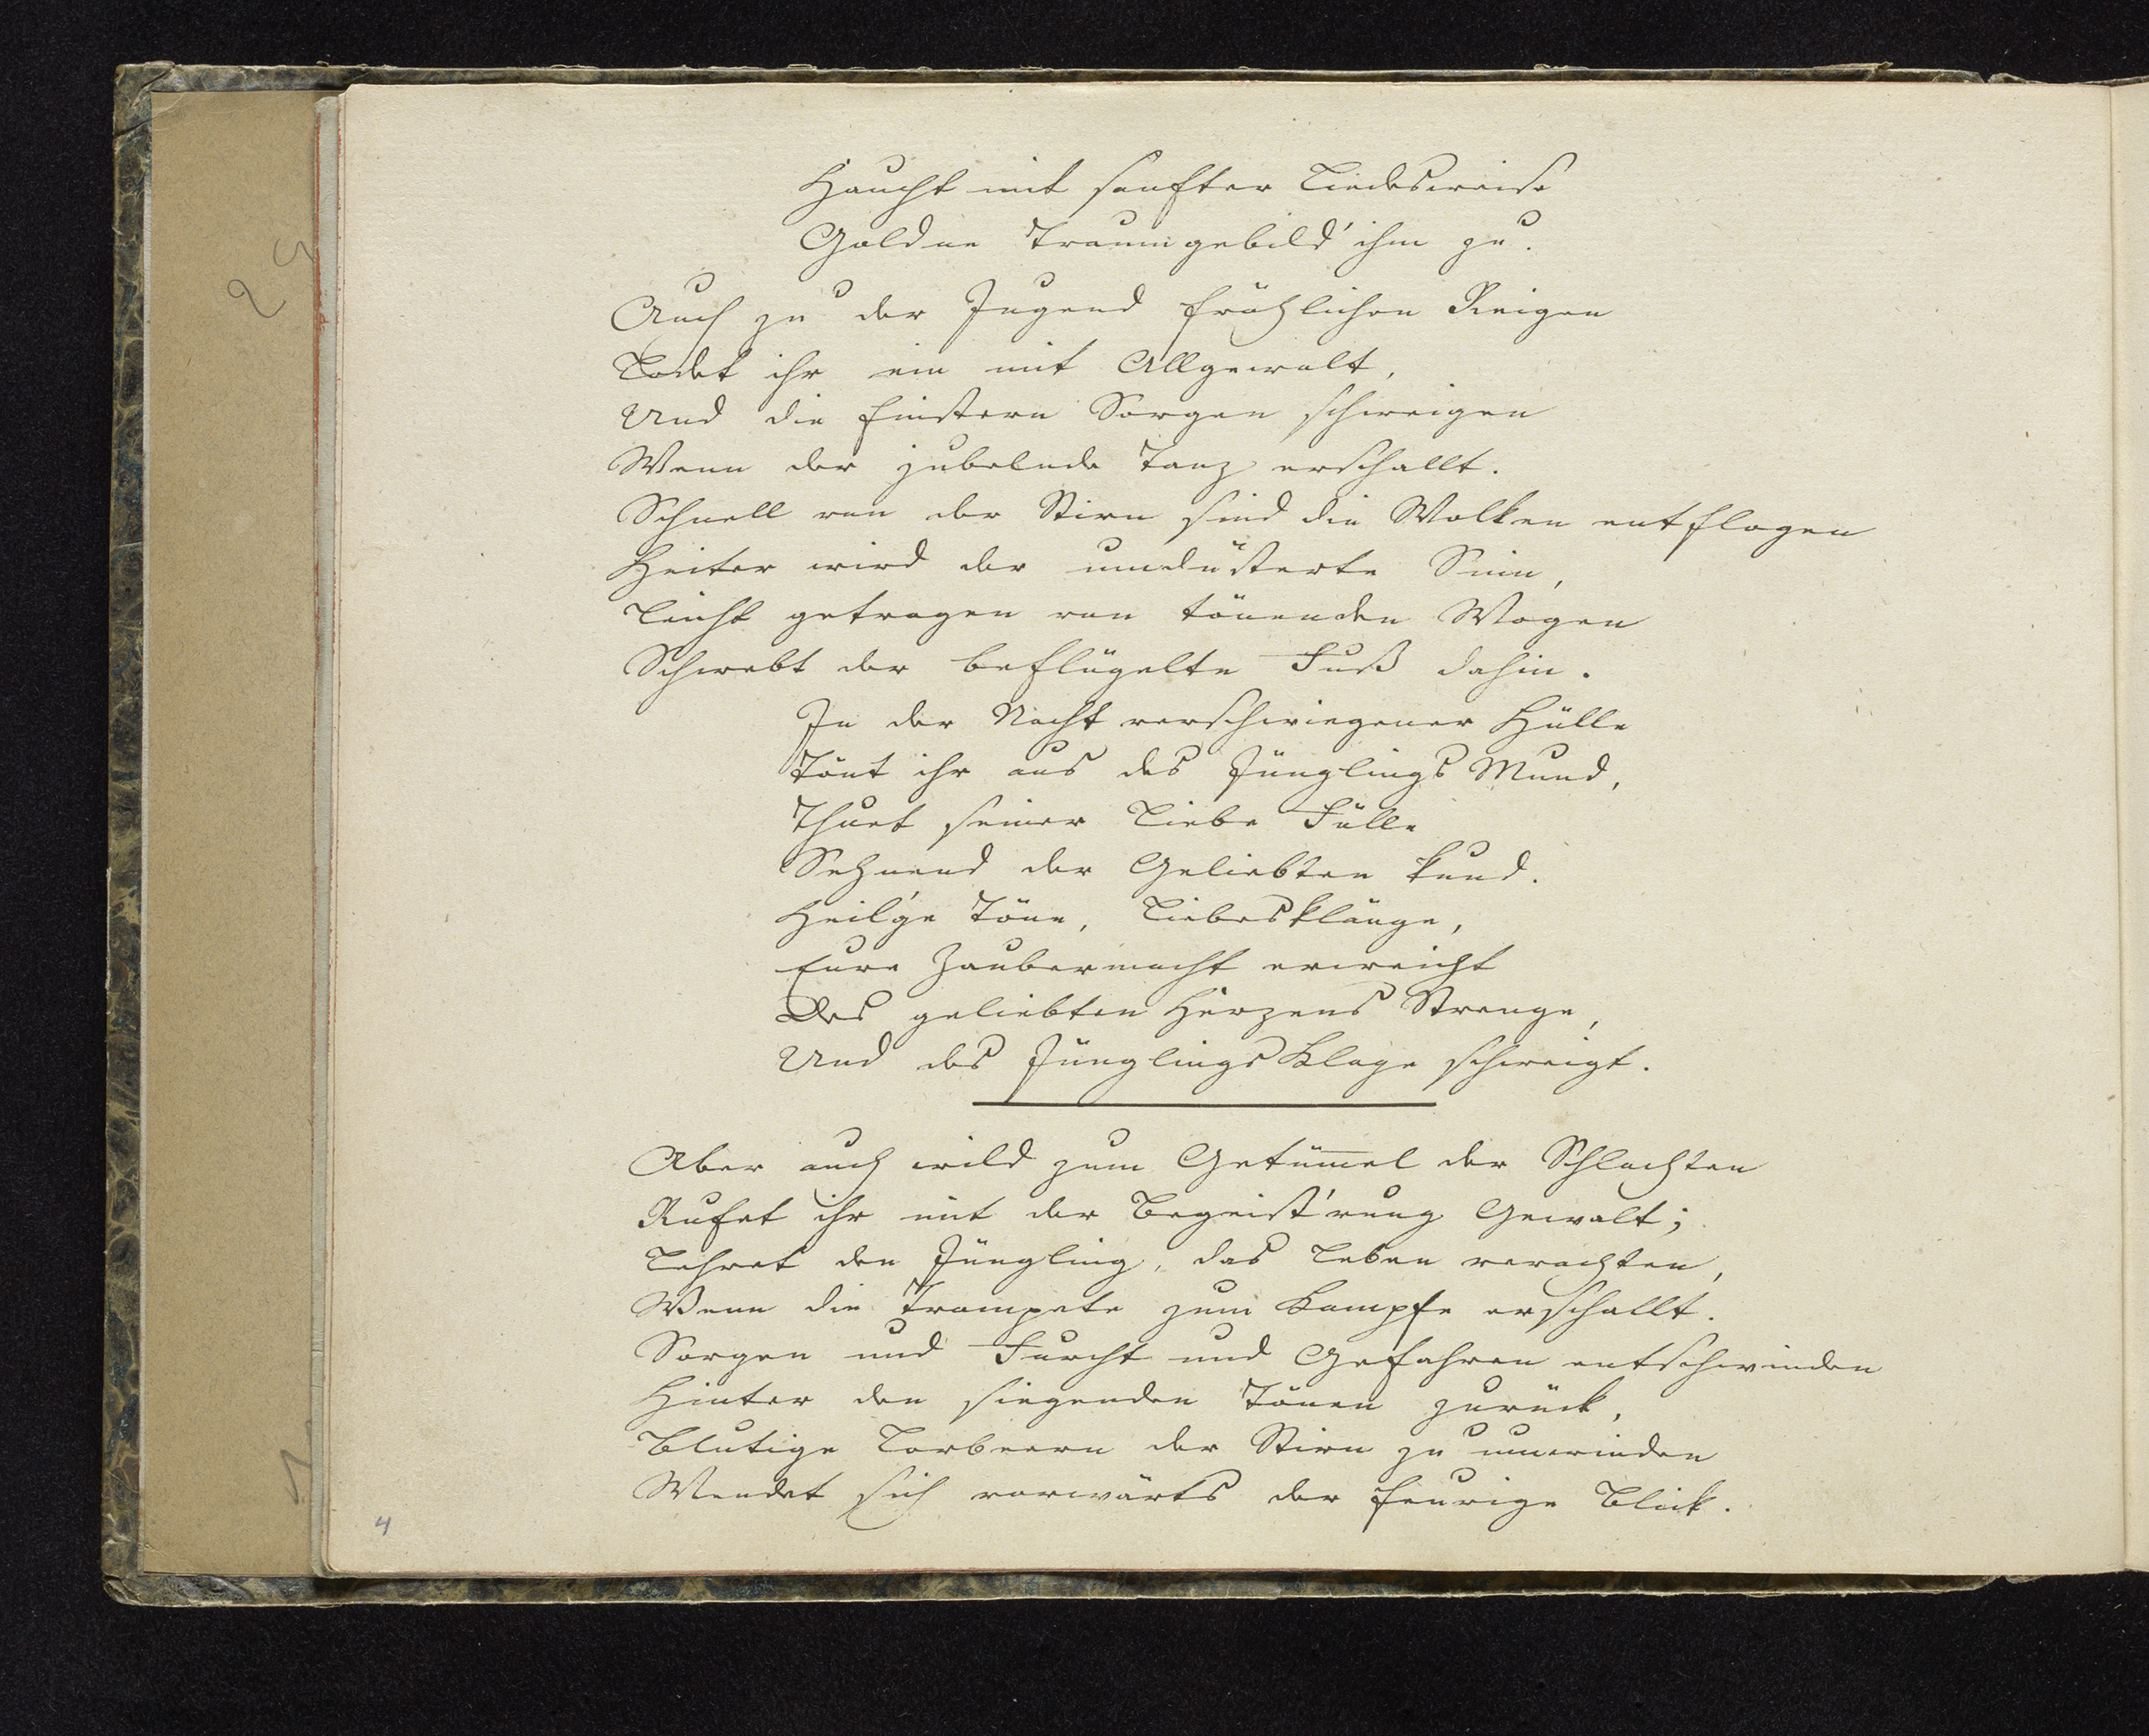 Haucht mit sanfter Liedesweise
Goldne Traumgebild' ihm zu.
Auch zu der Jugend fröhlichen Reigen
Ladet ihr ein mit Allgewalt,
Und die finstern Sorgen schweigen
Wenn der jubelnde Tanz erschallt.
Schnell von der Stirn sind die Wolken entflogen
Heiter wird der umdüsterte Sinn,
Leicht getragen von tönenden Wogen
Schwebt der beflügelte Fuß dahin.
In der Nacht verschwiegener Hülle
Tönt ihr aus des Jünglings Mund,
Thuet seiner Liebe Fülle
Sehnend der Geliebten kund.
Heil'ge Töne, Liebesklänge,
Eure Zaubermacht erweicht
Des geliebten Herzens Strenge,
Und des Jünglings Klage schweigt.
Aber auch wild zum Getüm̅el der Schlachten
Rufet ihr mit der Begeist'rung Gewalt;
Lehret den Jüngling, das Leben verachten,
Wenn die Trompete zum Kampfe erschallt.
Sorgen und Furcht und Gefahren entschwinden
Hinter den siegenden Tönen zurück,
Blutige Lorbeern der Stirn zu umwinden
Wendet sich vorwärts der feurige Blick.
4